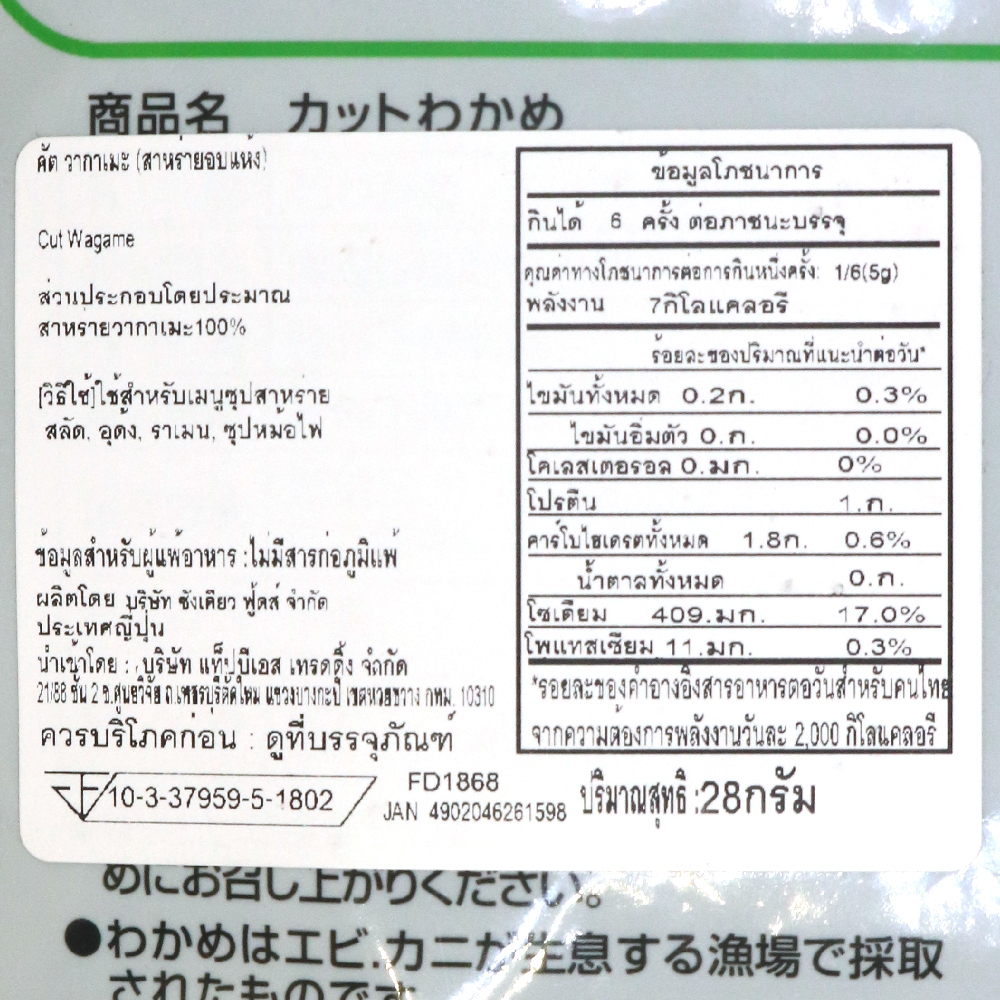 商品名 カットわかめ
คัต วากาเมะ (สาหร่ายอบแห้ง)
Cut Wagame
ส่วนประกอบโดยประมาณ
สาหรายวากาเมะ100%
[วิธีใช้]ใช้สำหรับเมนูซุปสาหราย
สลัด, อุด้ง, ราเมน, ซุปหม้อไฟ
ข้อมูลสำหรับผู้แพ้อาหาร :ไม่มีสารก่อภูมิแพ้
ผลิตโดย บริษัท ซังเคียว ฟู้ดส์ จำกัด
ประเทศญี่ปุ่น
นำเข้าโดย : บริษัท แท็ปบีเอส เทรดดิ้ง จำกัด
21/88 ชั้น 2 ซ.ศูนย์วิจัย ถ.เพชรบุรีตัดใหม่ แขวงบางกะปิ เขตหวยขวาง กทม. 10310
ควรบริโภคก่อน : ดูที่บรรจุภัณฑ์
10-3-37959-5-1802
FD1868
JAN 4902046261598
ปริมาณสุทธิ :28กรัม
ข้อมูลโภชนาการ
กินได้ 6 ครั้ง ต่อภาชนะบรรจุ
คุณค่าทางโภชนาการต่อการกินหนึ่งครั้ง: 1/6(5g)
พลังงาน 7กิโลแคลอรี
ร้อยละของปริมาณที่แนะนำต่อวัน*
ไขมันทั้งหมด 0.2ก. 0.3%
ไขมันอิ่มตัว 0.ก. 0.0%
โคเลสเตอรอล 0.มก. 0%
โปรตีน 1.ก.
คาร์โบไฮเดรตทั้งหมด 1.8ก. 0.6%
น้ำตาลทั้งหมด 0.ก.
โซเดียม 409.มก. 17.0%
โพแทสเซียม 11.มก. 0.3%
*รอยละของคำอางอิงสารอาหารตอวันสำหรับคนไทย
จากความต้องการพลังงานวันละ 2,000 กิโลแคลอรี
めにお召し上がりください。
●わかめはエビ.カニが生息する漁場で採取
されたものです